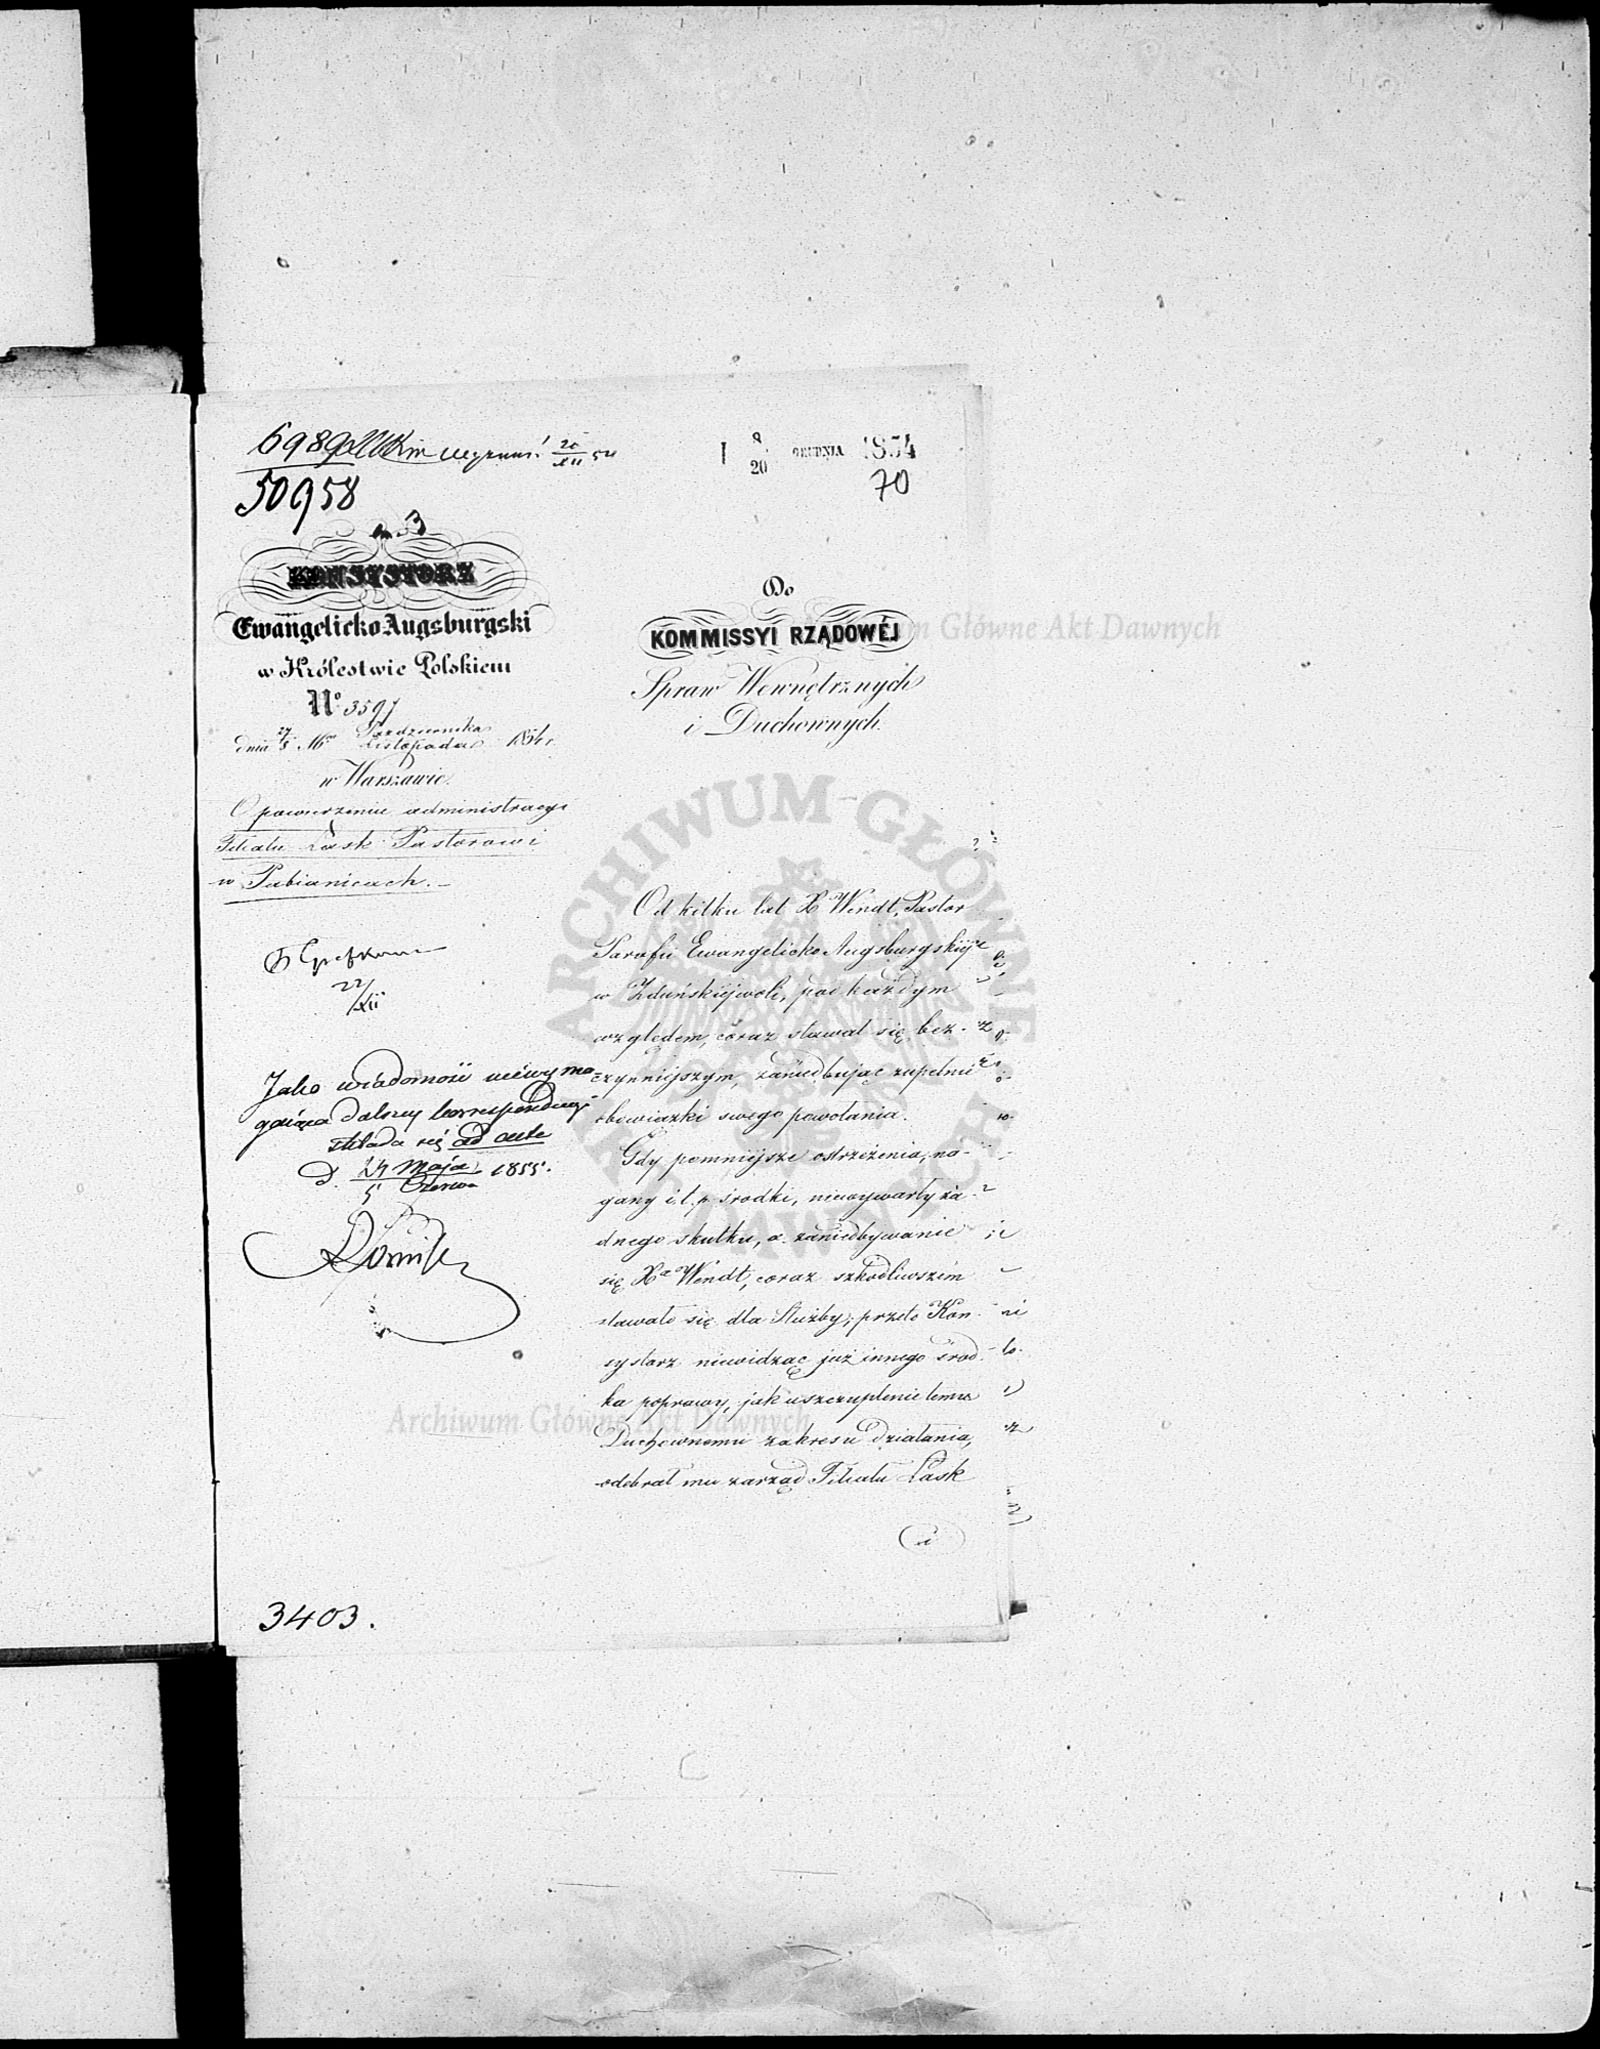 6989
50958
8
20 GRUDNIA 1854
70
KONSYSTORZ
Ewangelicko Augsburgski
w Królestwie Polskiem
No 3597
dnia 27/8 Października/Listopada 1854 r
w Warszawie.
O powierzeniu administracyi
Filiału Łask Pastorowi
w Pabianicach.
22/XII
Jako wiadomość niewyma
gająca dalszey korrespondencyi
składa się ad acta
d. 24 Maja/5 Czerwca 1855.
Do
KOMMISSYI RZĄDOWÉJ
Spraw Wewnętrznych
i Duchownych.
Od kilku lat X Wendt, Pastor
Parafii Ewangelicko Augsburgskiéj
w Zduńskiéjwoli, pod każdym
względem, coraz stawał się bez-
czynniejszym, zaniedbując zupełnie
obowiązki swego powołania.
Gdy pomniejsze ostrzeżenia, na-
gany i t. p. środki, niewywarły ża-
dnego skutku, a zaniedbywanie
się Xa Wendt, coraz szkodliwszém
stawało się dla Służby; przeto Kon-
systorz niewidząc już innego środ-
ka poprawy, jak uszczuplenie temu
Duchownemu zakresu działania,
odebrał mu zarząd Filiału Łask
i
3403.
ARCHIWUM GŁÓWNE AKT DAWNYCH
Archiwum Główne Akt Dawnych
Archiwum Główne Akt Dawnych